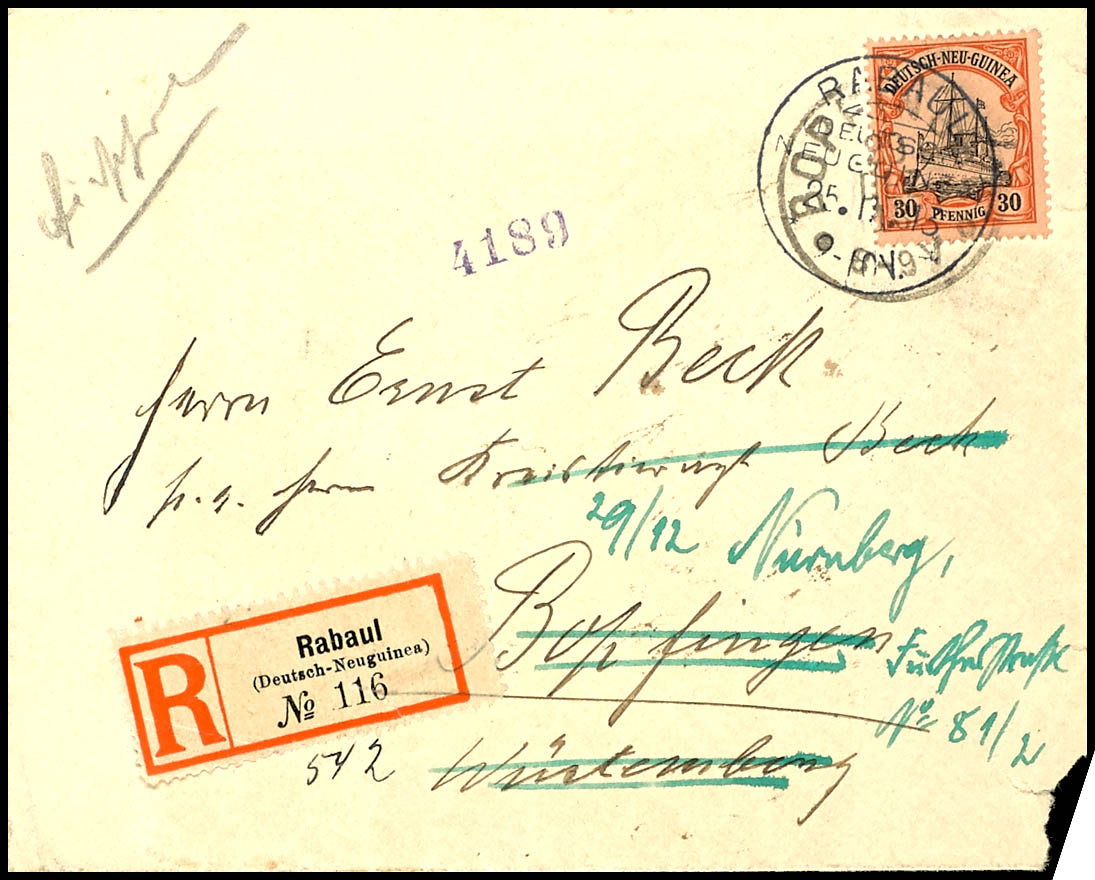 DEUTSCH-NEU-GUINEA
30 PFENNIG 30
RABAUL
DEUTSCH
NEUGUINEA
25.11.13
4189
Herrn Ernst Beck
p. a. Herrn Kreistierarzt Beck
29/12 Nürnberg,
Bopfingen
Fürtherstraße
No 81/2
Württemberg
R
Rabaul
(Deutsch-Neuguinea)
№ 116
542